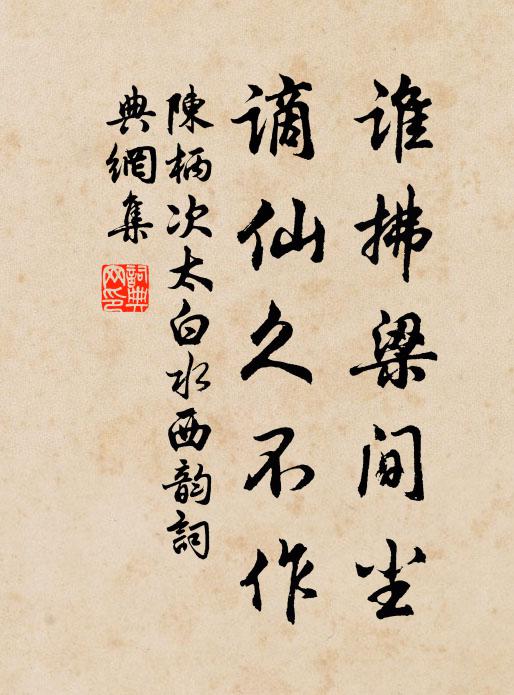 谁拂梁间尘
谪仙久不作
陳柄次太白水西韵詞
典網集
詞典网印